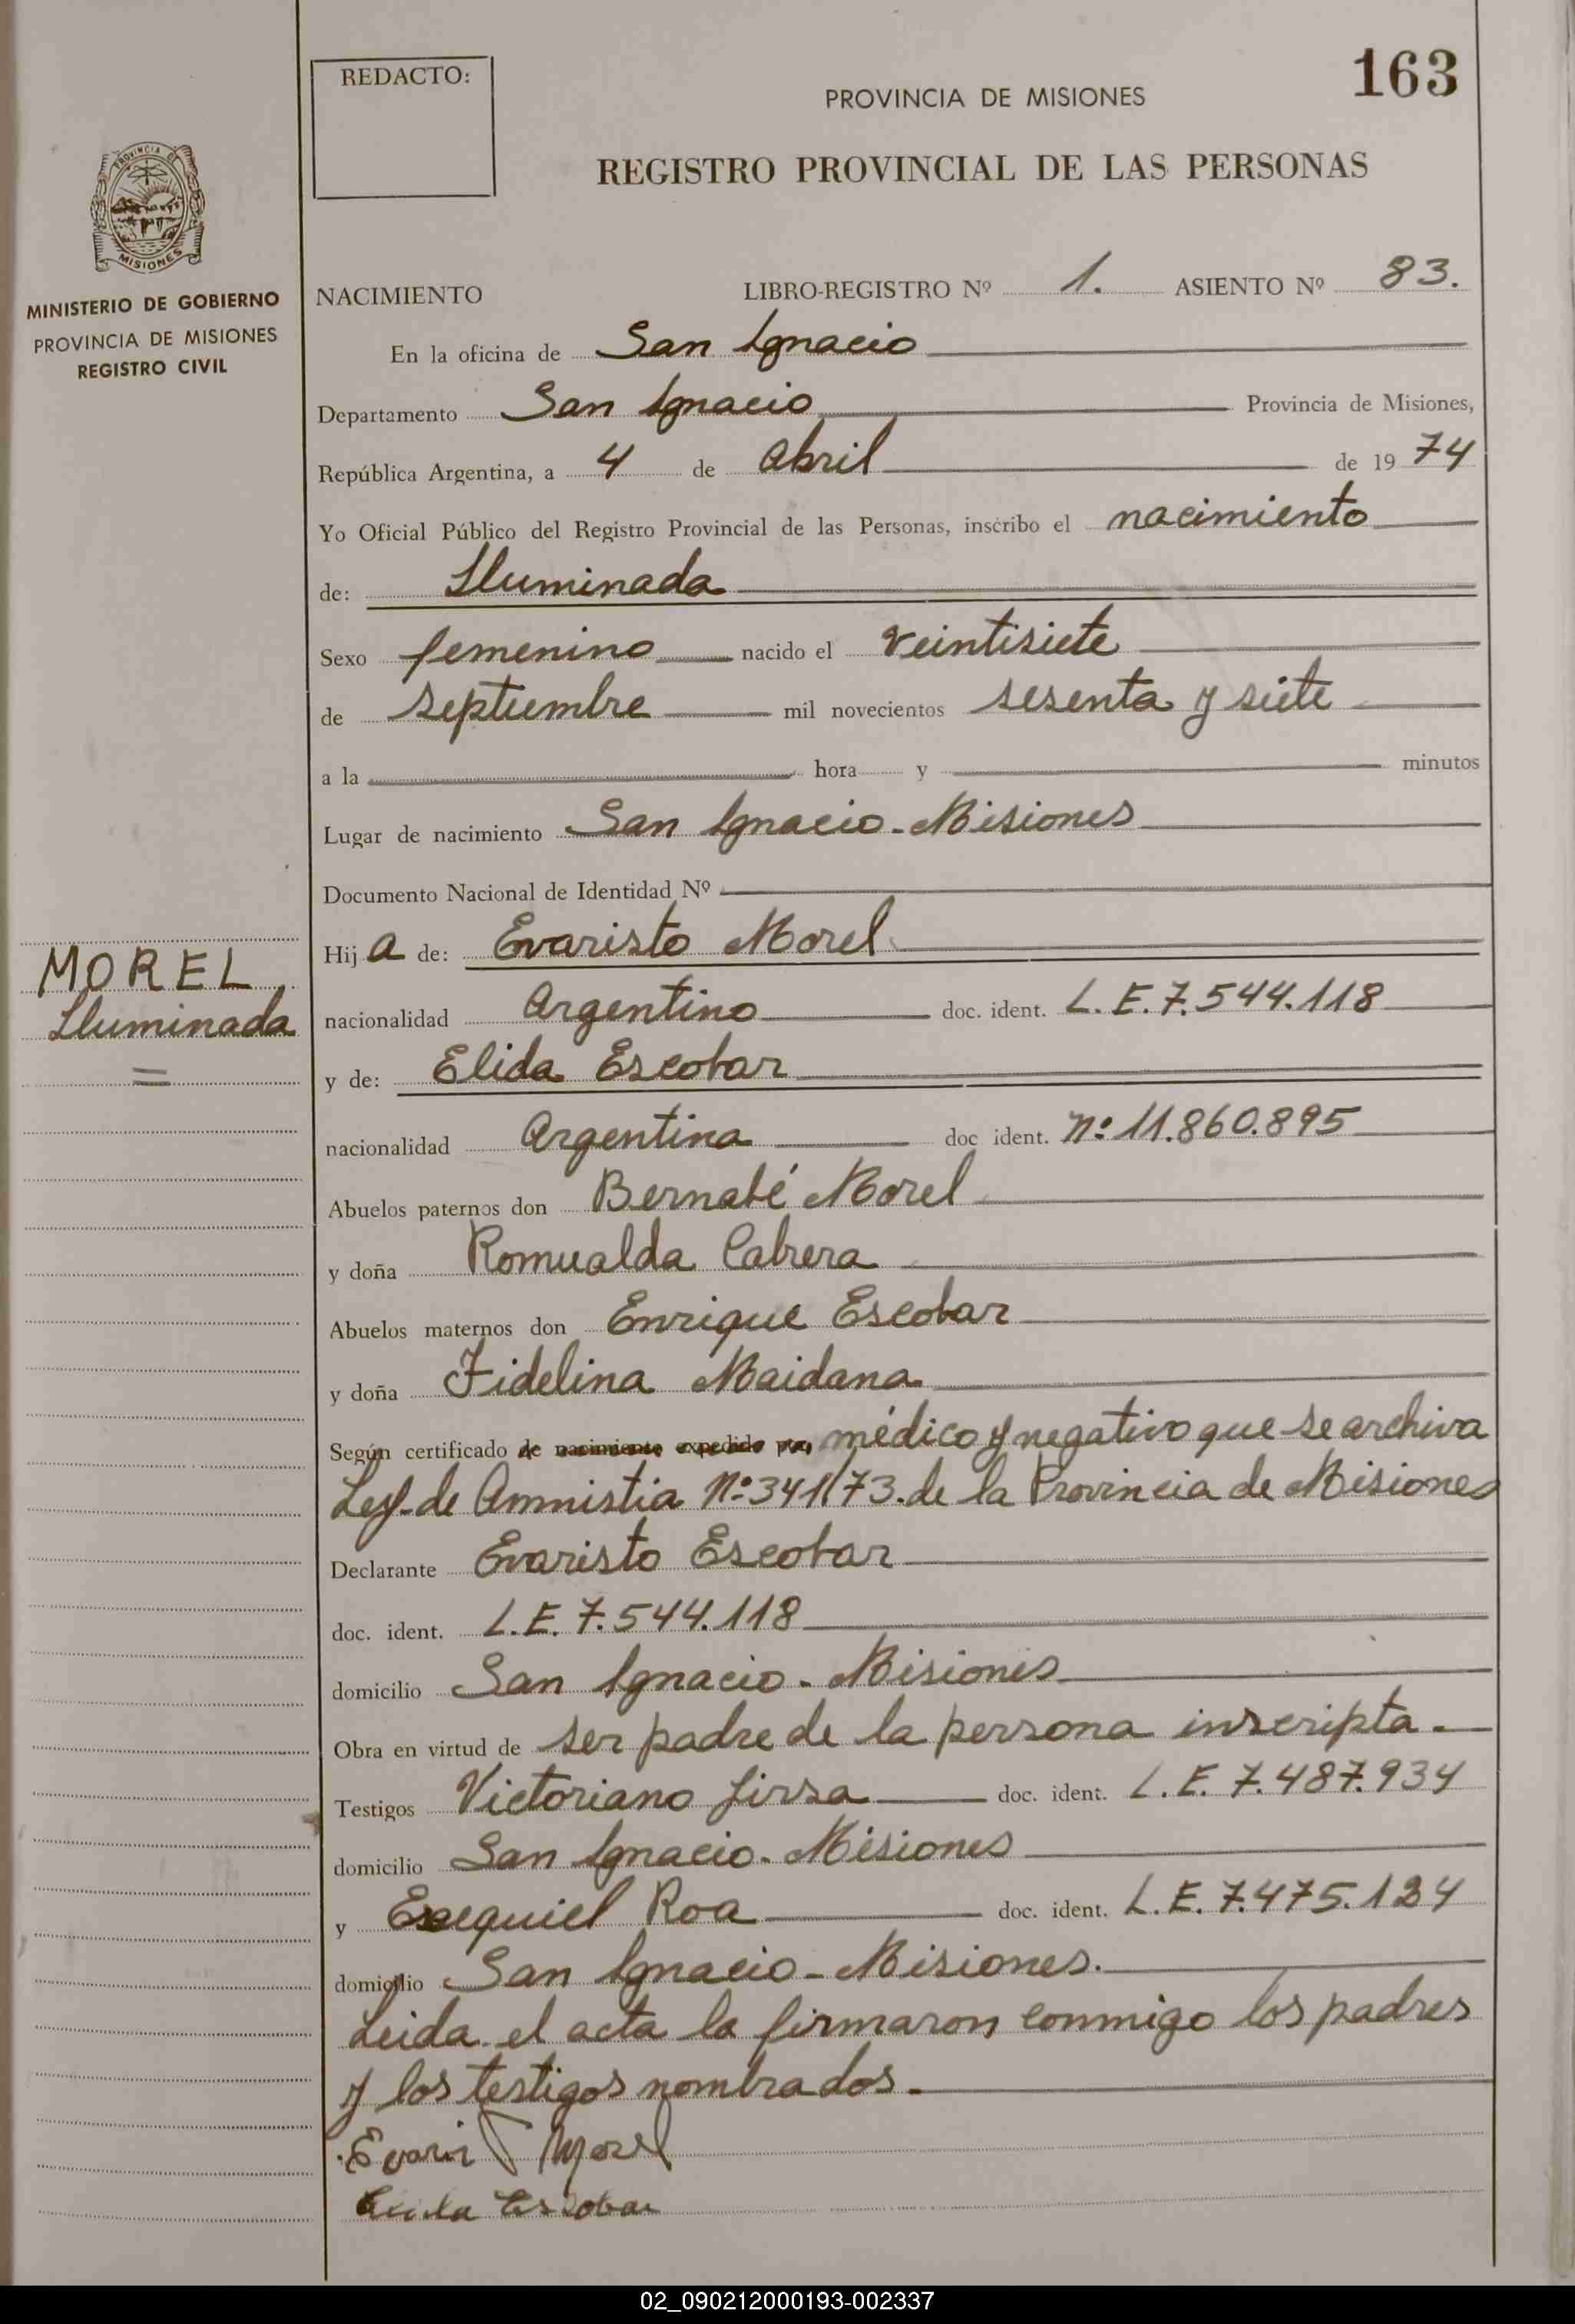 163
REDACTO:
PROVINCIA DE MISIONES
REGISTRO PROVINCIAL DE LAS PERSONAS
PROVINCIA DE
MISIONES
MINISTERIO DE GOBIERNO
PROVINCIA DE MISIONES
REGISTRO CIVIL
NACIMIENTO LIBRO-REGISTRO Nº 1. ASIENTO Nº 83.
En la oficina de San Ignacio
Departamento San Ignacio Provincia de Misiones,
República Argentina, a 4 de Abril de 1974
Yo Oficial Público del Registro Provincial de las Personas, inscribo el nacimiento
de: Iluminada
Sexo femenino nacido el veintisiete
de septiembre mil novecientos sesenta y siete
a la hora y minutos
Lugar de nacimiento San Ignacio - Misiones
Documento Nacional de Identidad Nº
Hij a de: Evaristo Morel
MOREL
Iluminada
nacionalidad Argentino doc. ident. L.E. 7.544.118
y de: Elida Escobar
nacionalidad Argentina doc ident. Nº 11.860.895
Abuelos paternos don Bernabé Morel
y doña Romualda Cabrera
Abuelos maternos don Enrique Escobar
y doña Fidelina Maidana
Según certificado de nacimiento expedido por médico y negativo que se archiva
Ley de Amnistia Nº 341/73. de la Provincia de Misiones
Declarante Evaristo Escobar
doc. ident. L.E. 7.544.118
domicilio San Ignacio - Misiones
Obra en virtud de ser padre de la persona inscripta.
Testigos Victoriano doc. ident. L.E. 7.487.934
domicilio San Ignacio - Misiones
y Exequiel Roa doc. ident. L.E. 7.475.124
domicilio San Ignacio - Misiones.
Leida el acta la firmaron conmigo los padres
y los testigos nombrados.
Morel
Escobar
02_090212000193-002337